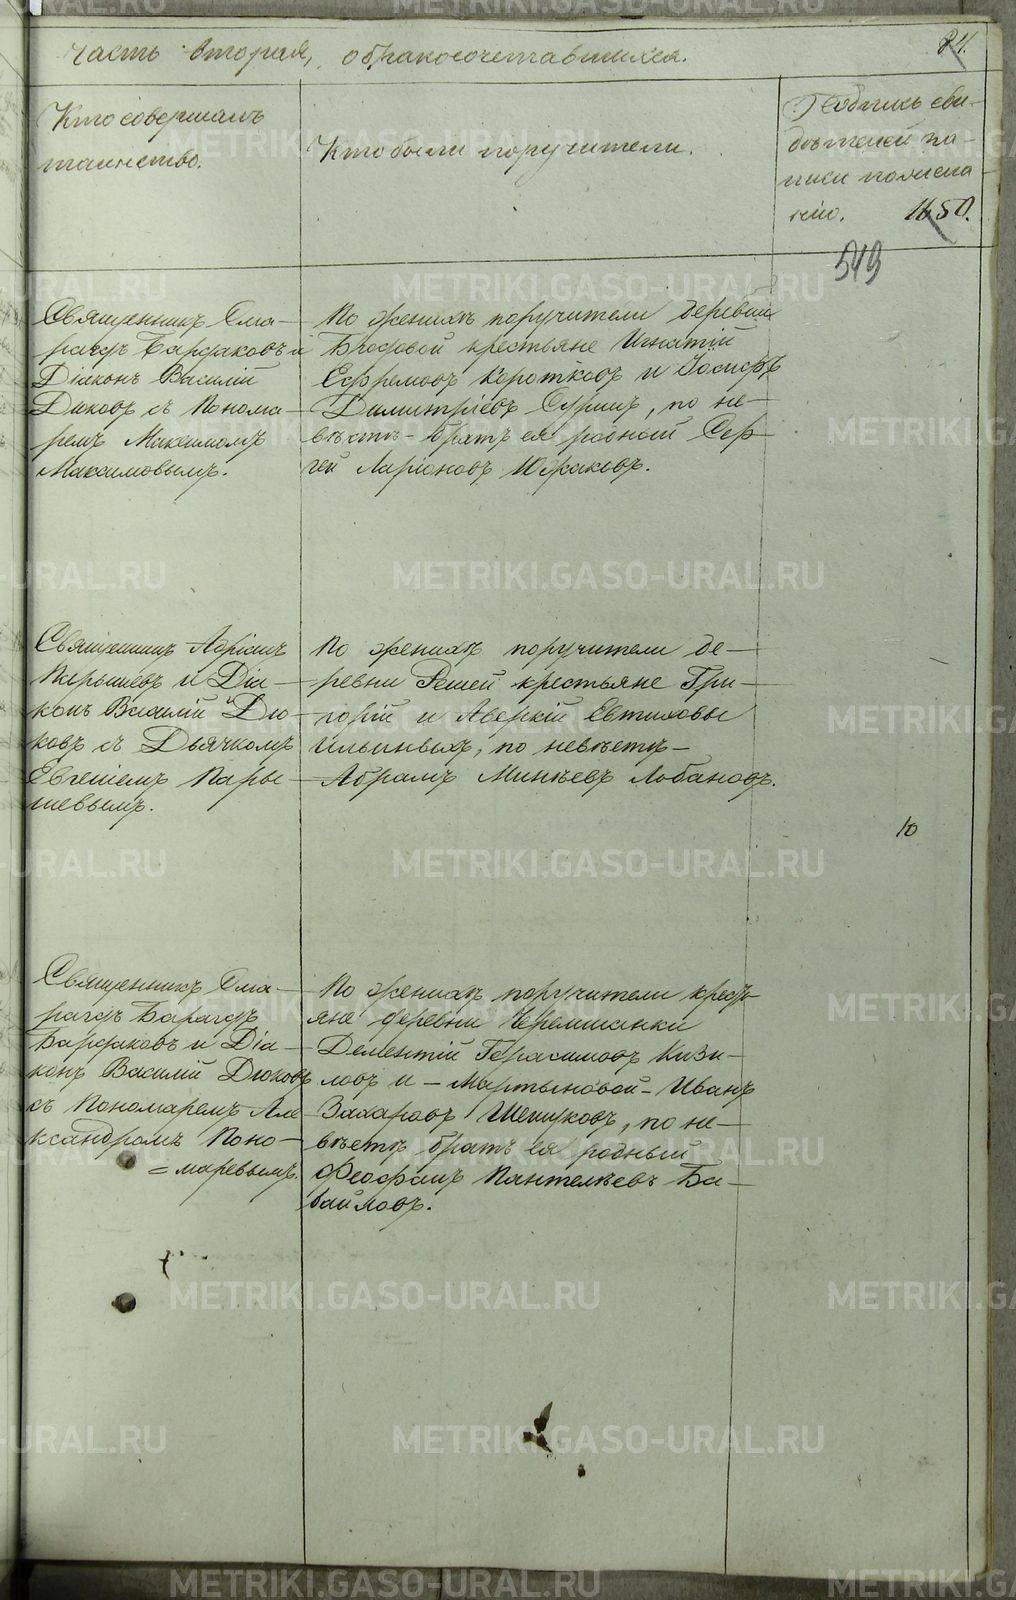 Часть вторая, о бракосочетавшихся.
84.
Кто совершалъ
таинство.
Кто были поручители.
Подпись сви-
дѣтелей за-
писи по жела-
нію. 1650.
549
Священникъ Сма-
рагдъ Бардаковъ и
Діаконъ Василій
Дюковъ съ Понома-
ремъ Максимомъ
Максимовымъ.
По женихѣ поручители деревни
Бродовой крестьяне Игнатій
Ефремовъ Коротковъ и Іосифъ
Димитріевъ Суринъ, по не-
вѣстѣ - братъ ея родный Сер-
гей Ларіоновъ Южаковъ.
Священникъ Адріанъ
Парышевъ и Діа-
конъ Василій Дю-
ковъ съ Дьячкомъ
Евгеніемъ Пары-
шевымъ.
По женихѣ поручители де-
ревни Решей крестьяне Гри-
горій и Аверкій Евтиховы
Ильиныхъ, по невѣстѣ -
Абрамъ Минѣевъ Лобановъ.
10
Священникъ Сма-
рагдъ
Бардаковъ и Діа-
конъ Василій Дюковъ
съ Пономаремъ Але
ксандромъ Поно-
=маревымъ.
По женихѣ поручители кресть-
яне деревни Черемшанки
Дементій Герасимовъ Кизи-
ловъ и - Мартыновой - Иванъ
Захаровъ Шешуковъ, по не-
вѣстѣ братъ ея родный
Феофанъ Пантелѣевъ Ба-
байловъ.
METRIKI.GASO-URAL.RU